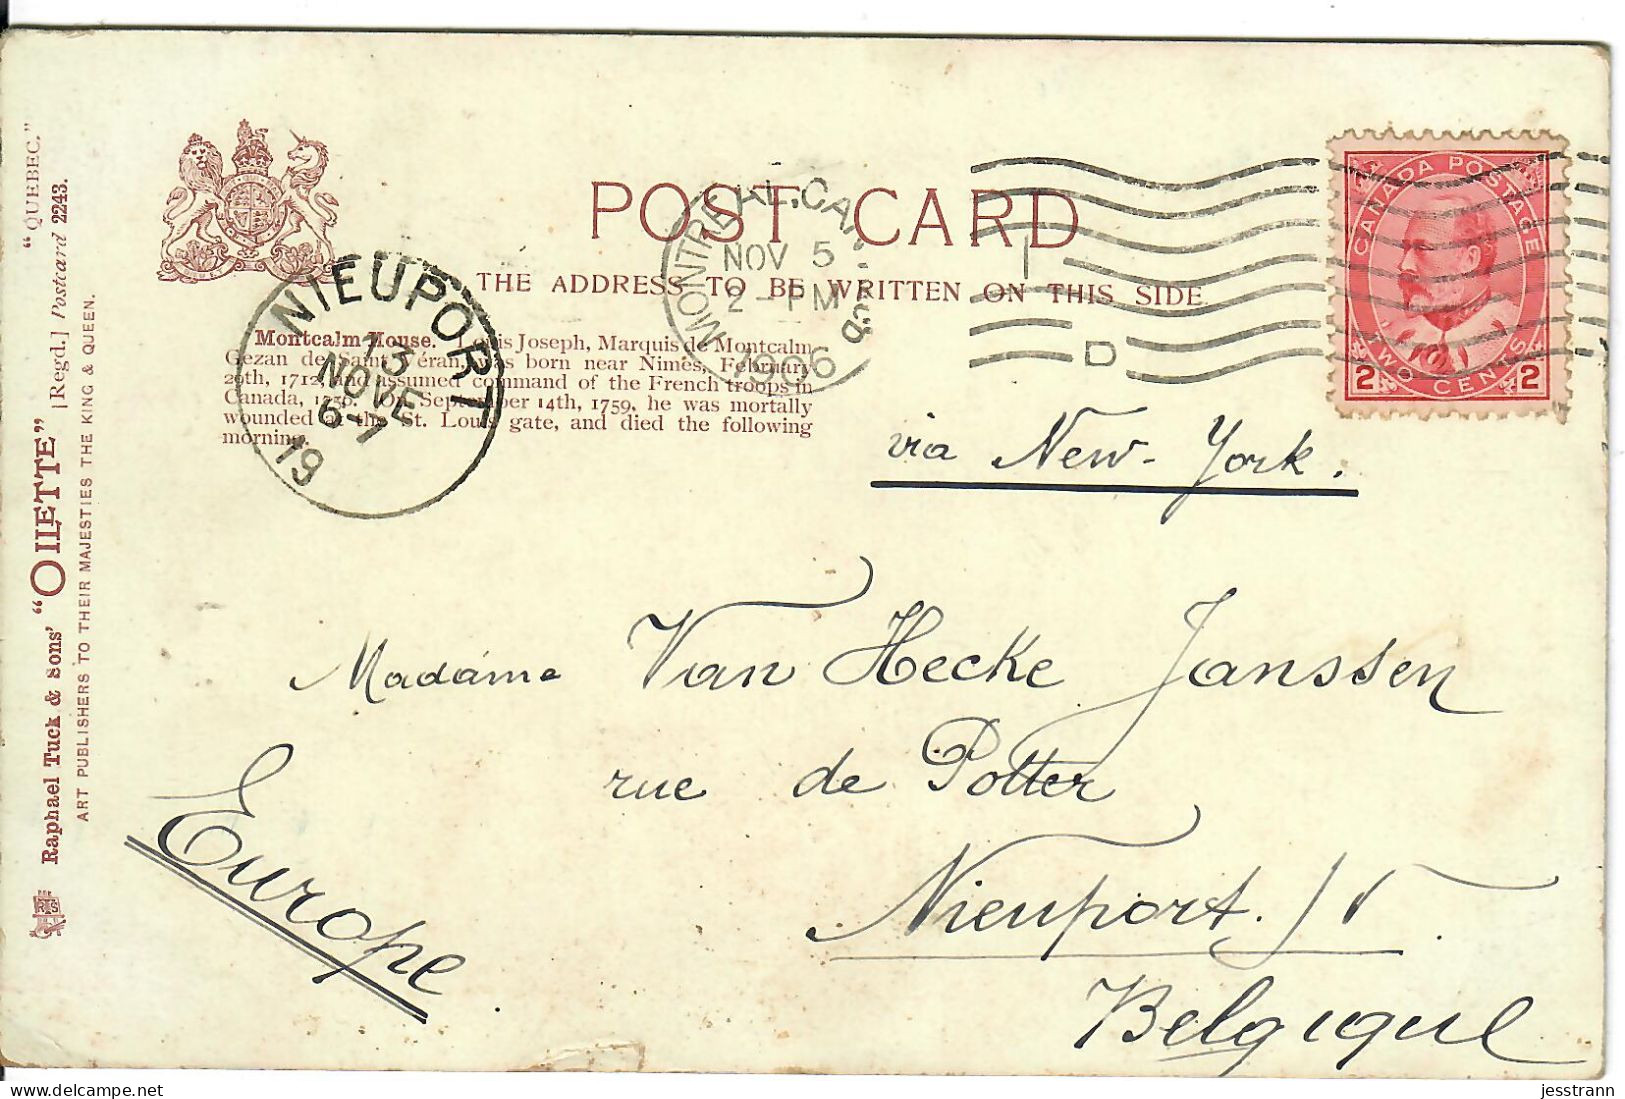 POST CARD
THE ADDRESS TO BE WRITTEN ON THIS SIDE
MONTREAL, CANADA
NOV 5
2 - PM
1906
D
CANADA POSTAGE
2 TWO CENTS 2
NIEUPORT
13
NOVE
6-7
19
Montcalm House. Louis Joseph, Marquis de Montcalm
Gezan de Saint Véran, was born near Nimes, February
29th, 1712, and assumed command of the French troops in
Canada, 1756. On September 14th, 1759, he was mortally
wounded at the St. Louis gate, and died the following
morning.
via New-York.
Madame Van Hecke Janssen
rue de Potter
Nieuport.
Belgique
Europe
"QUEBEC."
Raphael Tuck & Sons' "OILETTE" [Regd.] Postcard 2243.
ART PUBLISHERS TO THEIR MAJESTIES THE KING & QUEEN.
jesstrann